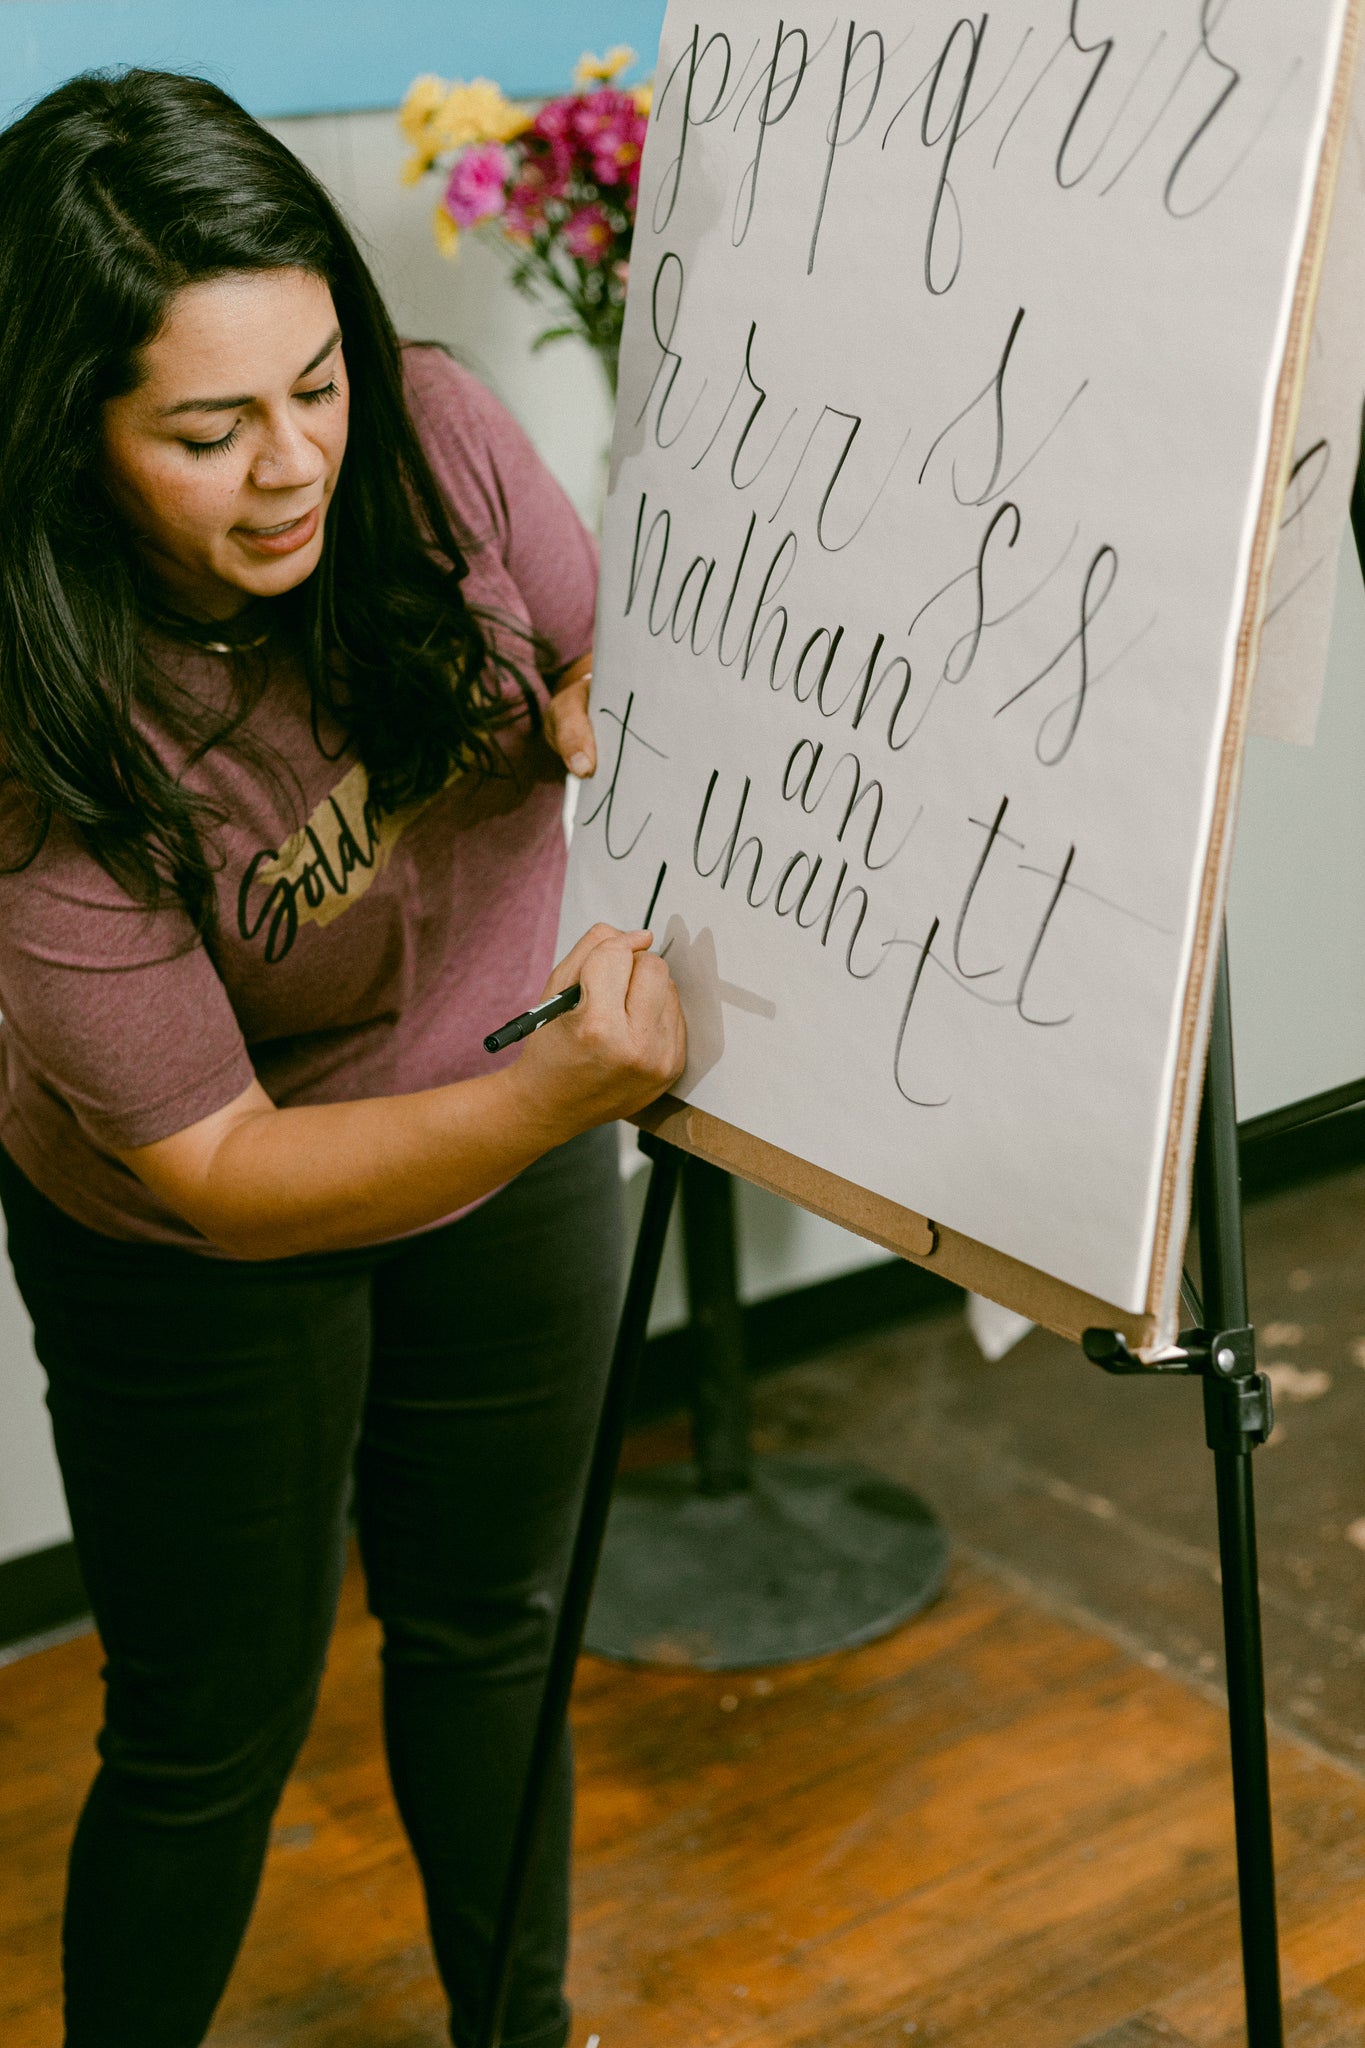 p p p q r r
r r r s
nathan s s
an
t than t t
t